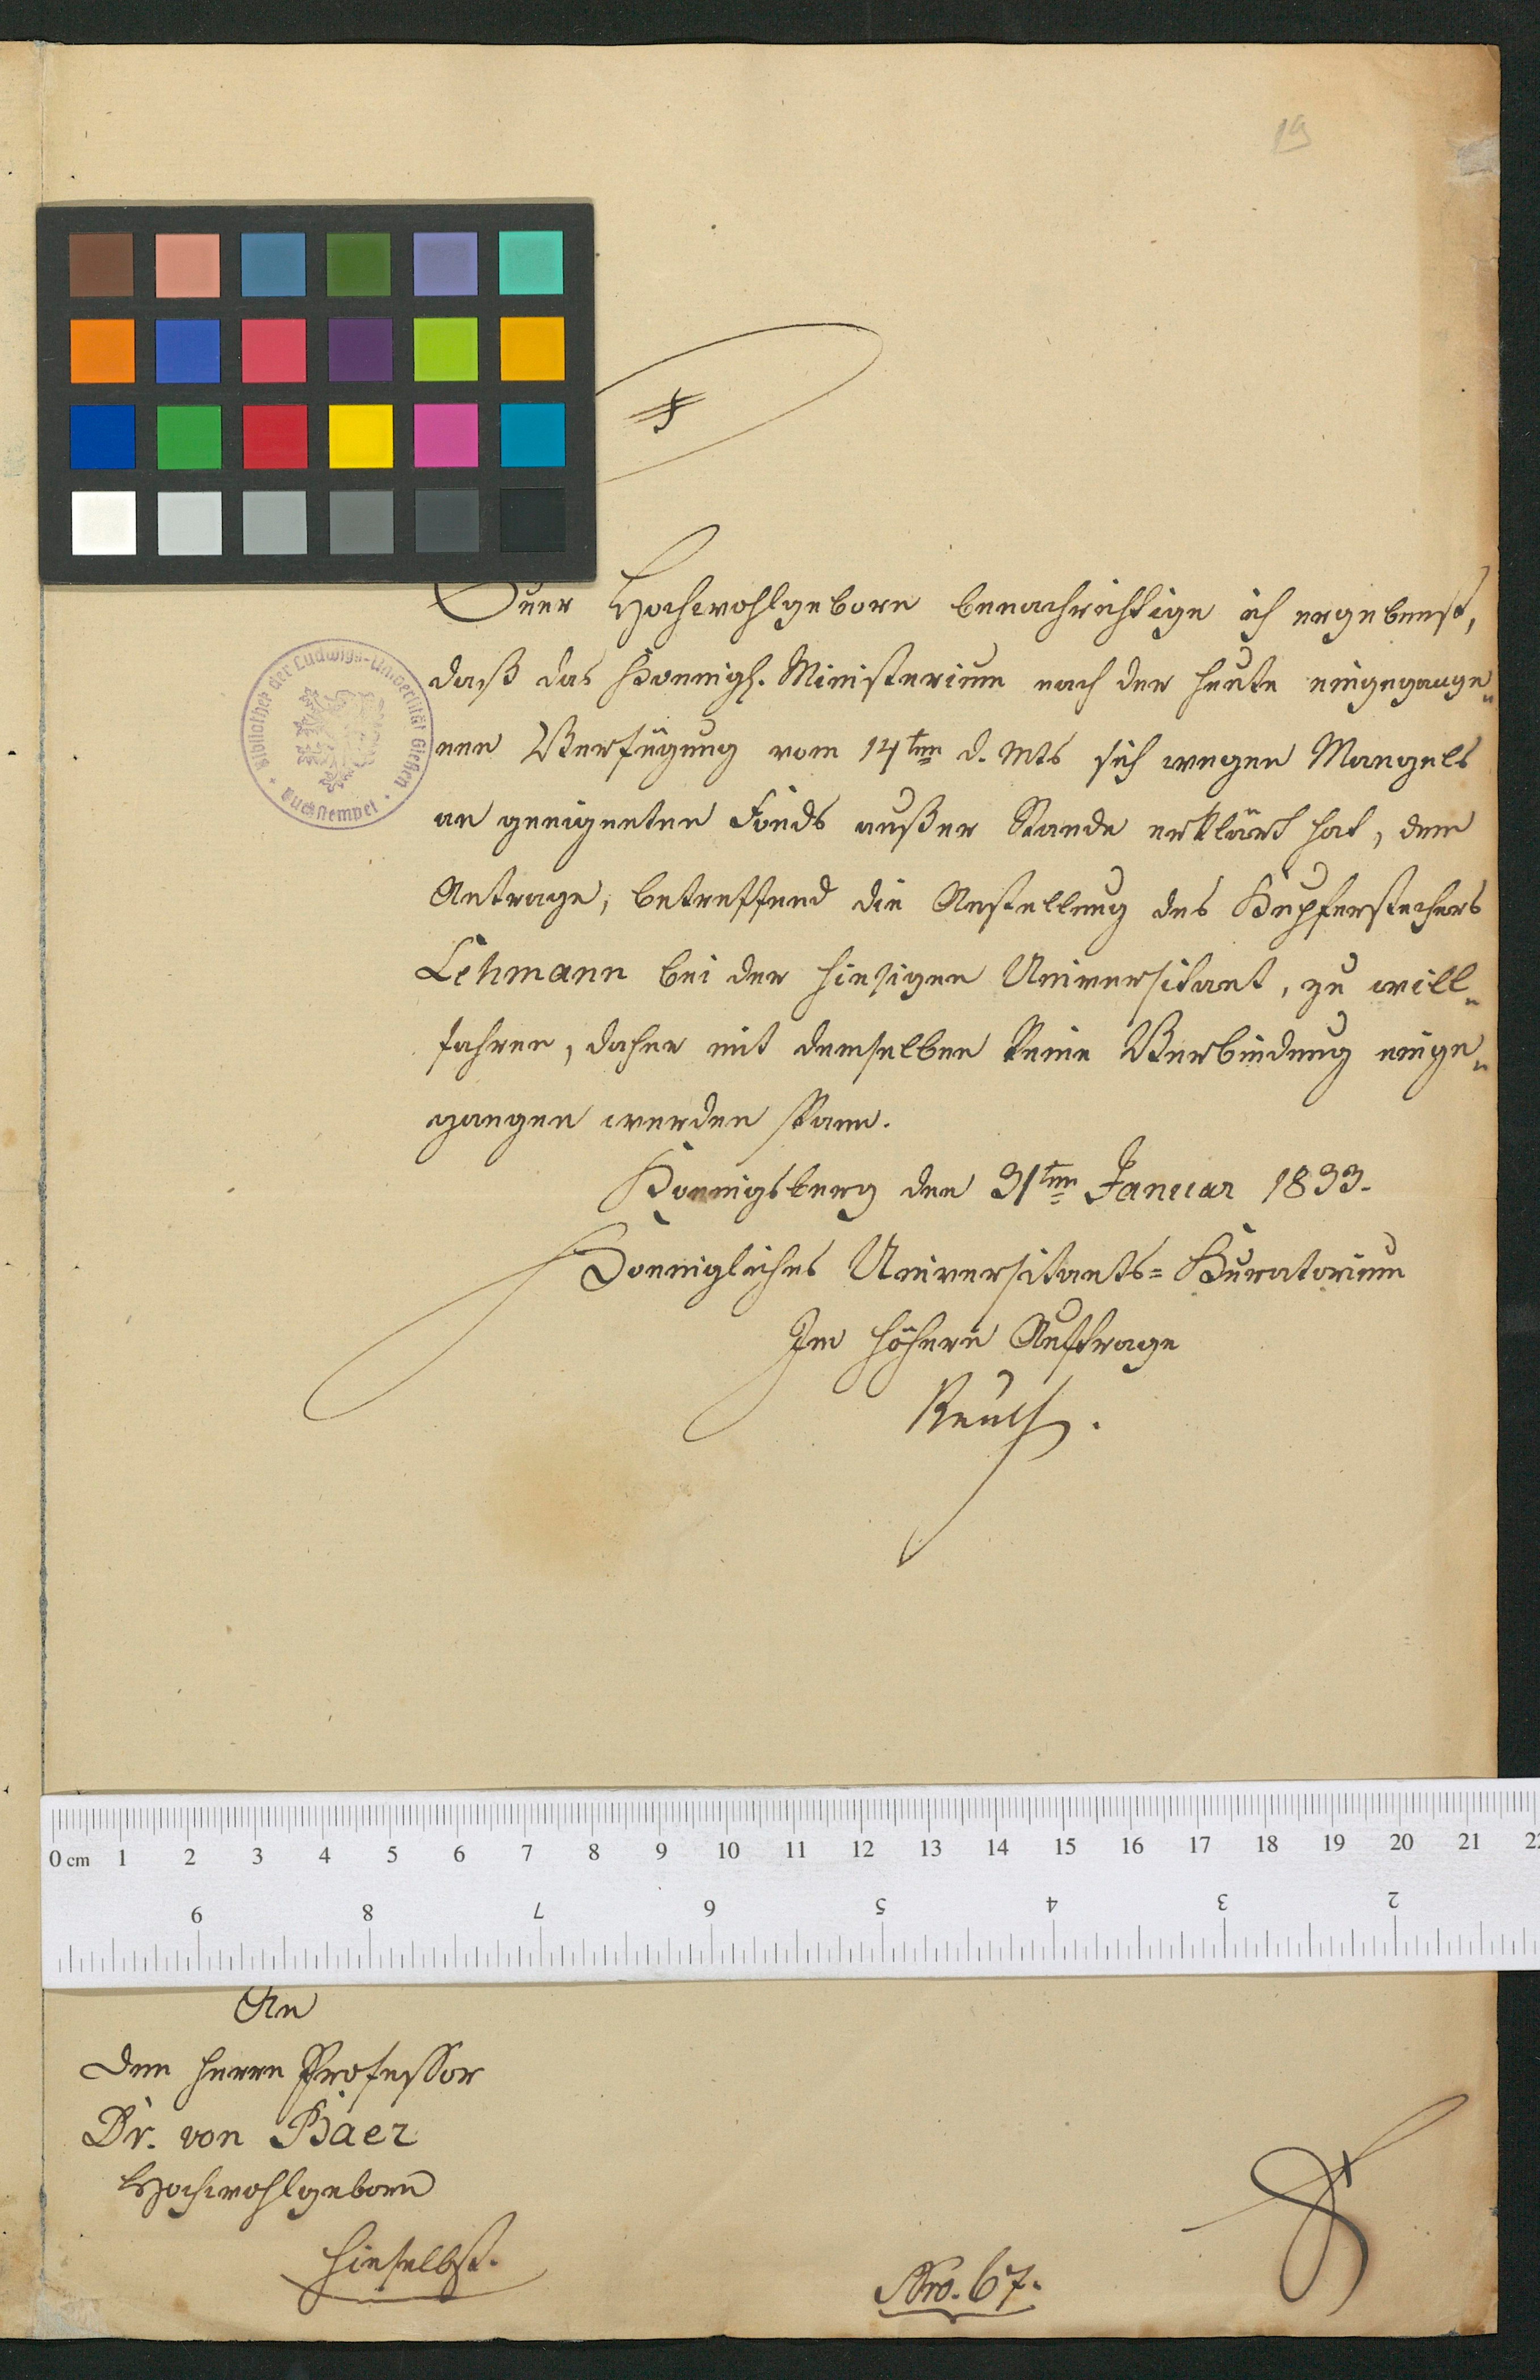 19
Euer Hochwohlgeborn benachrichtige ich ergebenst,
daß das Koenigl. Ministerium nach der heute eingegange„
nen Verfügung vom 14ten d. Mts sich wegen Mangels
an geeigneten Fonds außer Stande erklärt hat, dem
Antrage, betreffend die Anstellung des Kupferstechers
Lehmann bei der hiesigen Universitaet, zu will„
fahren, daher mit demselben keine Verbindung einge„
gangen werden kann.
Koenigsberg den 31ten Januar 1833.
Koenigliches Universitaets=Kuratorium
Im höhern Auftrage
Reusch.
Bibliothek der Ludwigs-Universität Gießen
Buchstempel
0 cm 1 2 3 4 5 6 7 8 9 10 11 12 13 14 15 16 17 18 19 20 21 22
9 8 7 6 5 4 3 2
An
den Herrn Professor
Dr. von Baer
Hochwohlgeborn
hieselbst.
Nro. 67.